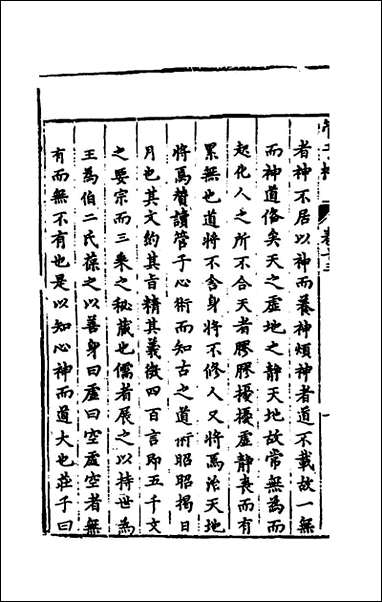 卷十三
一
者神不居以神而養神煩神者道不載故一無
而神道俻矣天之虛地之靜天地故常無為而
起化人之所不合天者膠膠擾擾虛靜喪而有
累無也道將不舍身將不修人又將焉治天地
將焉贊讀管子心術而知古之道術昭昭揭日
月也其文約其旨精其義微四百言即五千文
之要宗而三乘之秘藏也儒者展之以持世為
王為伯二氏葆之以善身曰虛曰空虛空者無
有而無不有也是以知心神而道大也莊子曰